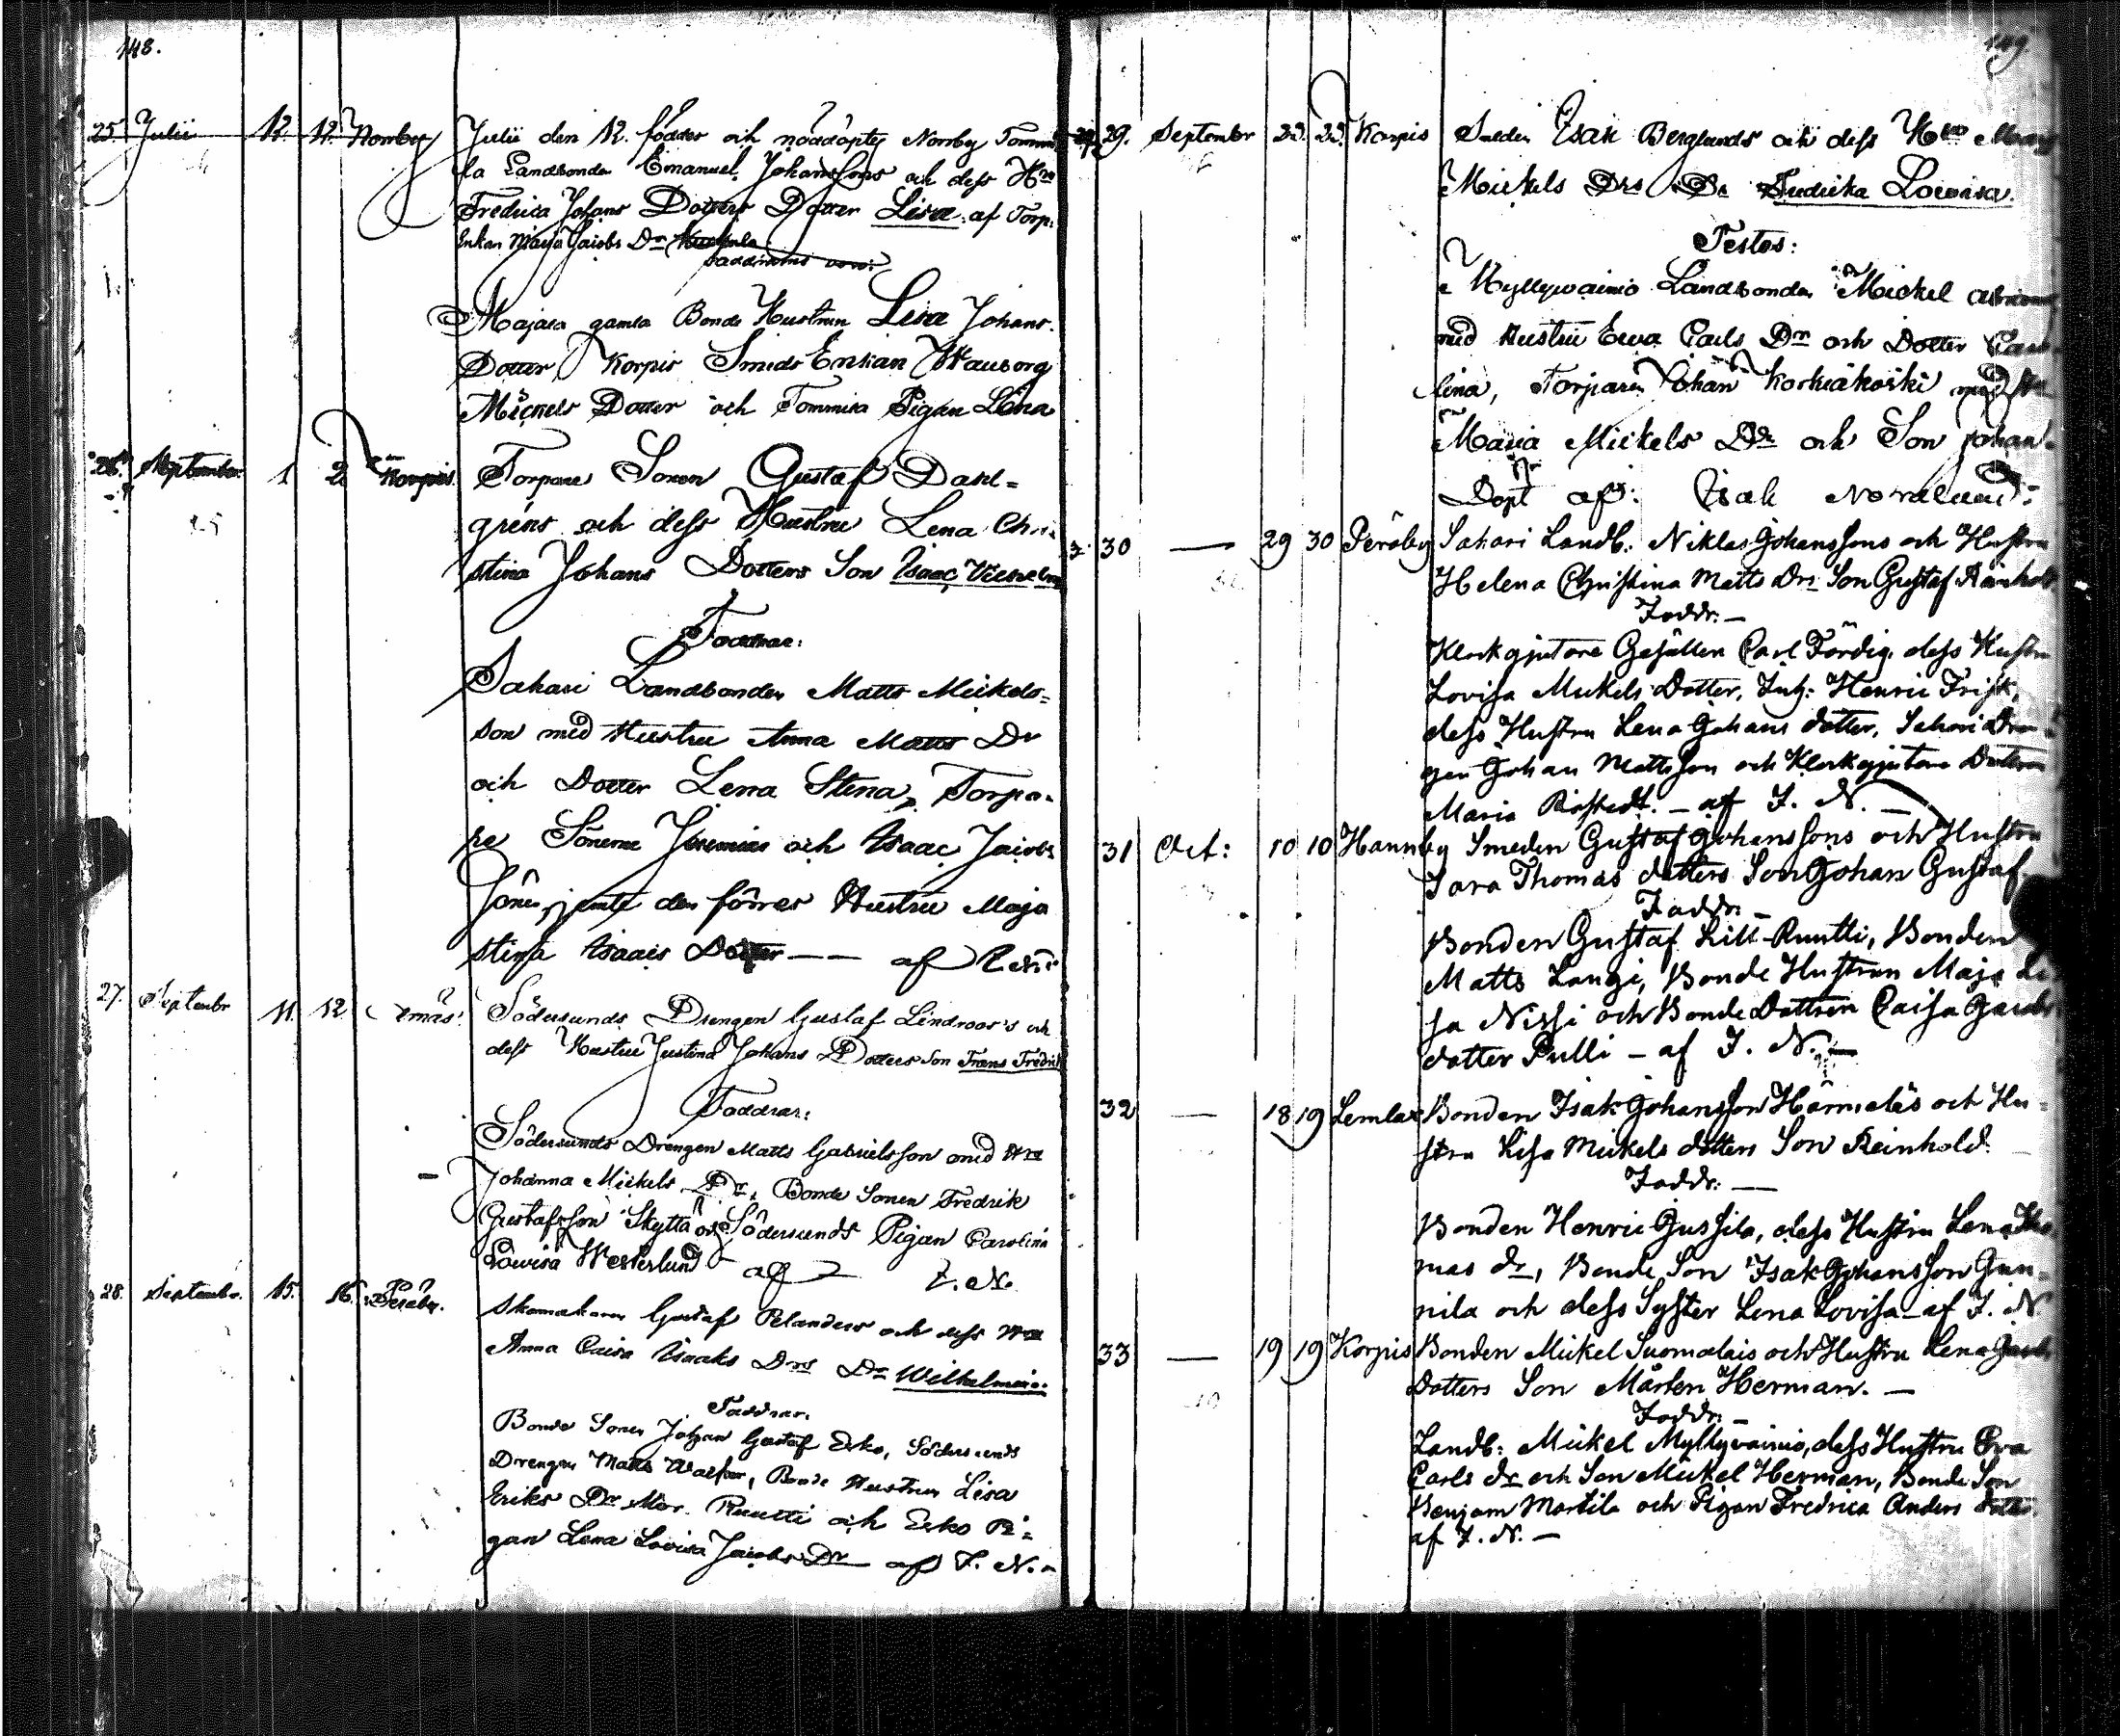 148.
25. Julii 12. 12. Norrby Julii den 12. föddes och nöddöptes Norrby Tommi
la Landbonden Emanuel Johanssons och dess Hru
Fredrica Johans Dotters Dotter Lisa af Torp.
Enkan Maja Jacobs Dr
Faddrarne voro:
Majala gamla Bonde Hustrun Lisa Johans
Dotter, Korpis Smeds Enkan Wauborg
Mickels Dotter och Tommila Pigan Lena
26. September 1 2 Korpis. Torpare Sonen Gustaf Dahl=
gréns och dess Hustru Lena Chri-
stina Johans Dotters Son Isaac Vilhelm
Faddrar:
Sahari Landbonden Matts Mickels=
son med Hustru Anna Matts Dr
och Dotter Lena Stina, Torpa-
re Sönerne Jeremias och Isaac Jacobs
Söner, jemte den förres Hustru Maja
Stina Isaacs Dotter — — af I. N.
27. Septembr 11. 12 Södersunds Drengen Gustaf Lindroos's och
dess Hustru Justina Johans Dotters Son Frans Fredrik
Faddrar:
Södersunds Drengen Matts Gabrielsson med Hru
Johanna Mickels Dr, Bonde Sonen Fredrik
Gustafsson Skyttä och Södersunds Pigan Carolina
Lowisa Westerlund — af I. N.
28. September. 15. 16. Peräby. Skomakaren Gustaf Relanders och dess Hru
Anna Caisa Isaaks Drs Dr Wilhelmina.
Faddrar.
Bonde Sonen Johan Gustaf Erko, Södersunds
Drengen Matts, Bonde Hustrun Lisa
Eriks Dr Mor. Ruutti och Erko Pi=
gan Lena Lovisa Jacobs Dr — af I. N. -
149.
29. Septembr 23. 23. Korpis Smeden Isak Berglunds och dess Hru
Mickels Drs Dr Fredrika Lowisa.
Testes:
Myllywainio Landbonden Mickel
med Hustru Ewa Carls Dr och Dotter Caro-
lina, Torparen Johan Korkiakoski med Hu
Maria Mickels Dr och Son Johan.
Döpt af: Isak Nordlund:
30 — 29 30 Peräby Sahari Landb. Niklas Johanssons och Hustru
Helena Christina Matts Drs Son Gustaf Reinhold
Faddr. —
Klockgjutare Gesällen Carl Fördig, dess Hustru
Lovisa Mickels Dotter, Inh: Henric Frisk,
dess Hustru Lena Johans dotter, Sahari Dren=
gen Johan Mattsson och Klockgjutare Dottren
Maria Riostedt. — af I. N. —
31 Oct: 10 10 Hannby Smeden Gustaf Johanssons och Hustru
Sara Thomas dotters Son Johan Gustaf
Faddr. —
Bonden Gustaf Lill-Ruutti, Bonden
Matts Langi, Bonde Hustrun Maja Li
sa Nissi och Bonde Dottren Caisa Jacobs
dotter Pulli — af I. N. —
32 — 18 19 Lemlax Bonden Isak Johansson Hämeläs och Hu=
stru Lisa Mickels dotters Son Reinhold.
Faddr. —
Bonden Henric Jussila, dess Hustru Lena Tho
mas dr, Bonde Son Isak Johansson Gun=
nila och dess Syster Lena Lovisa — af I. N
33 — 19 19 Korpis Bonden Mickel Suomalais och Hustru Lena Jacobs
Dotters Son Mårten Herman. —
Faddr. —
Landb: Mickel Myllyvainio, dess Hustru Eva
Carls dr och Son Mickel Herman, Bonde Son
Benjam Martila och Pigan Fredrica Anders dotter.
af I. N. —